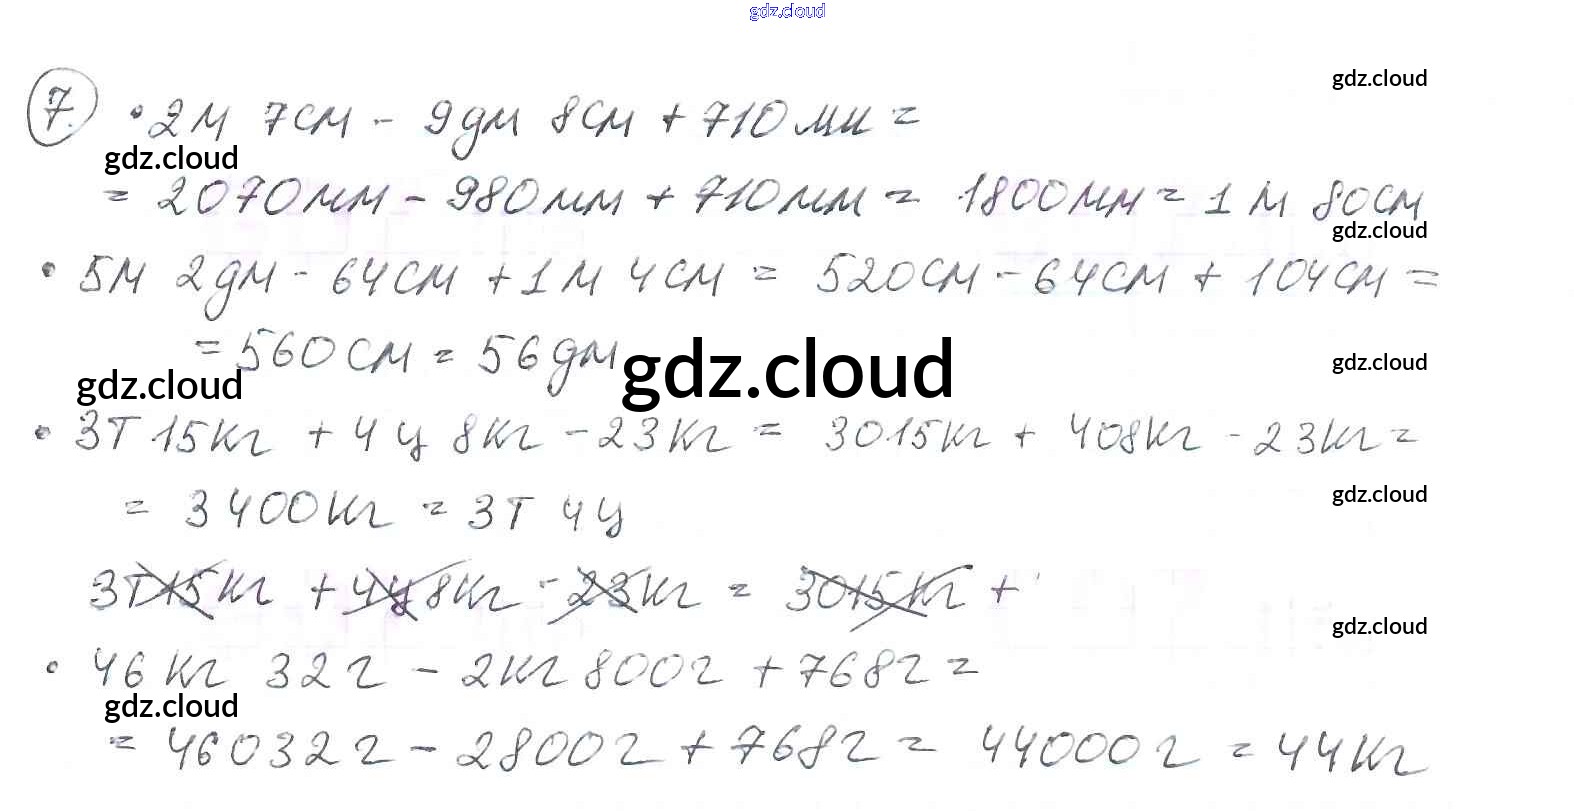 gdz.cloud
gdz.cloud
7. • 2м 7см - 9дм 8см + 710мм =
gdz.cloud
= 2070мм - 980мм + 710мм = 1800мм = 1м 80см
gdz.cloud
• 5м 2дм - 64см + 1м 4см = 520см - 64см + 104см =
= 560см = 56дм
gdz.cloud
gdz.cloud
gdz.cloud
• 3т 15кг + 4ц 8кг - 23кг = 3015кг + 408кг - 23кг =
gdz.cloud
= 3400кг = 3т 4ц
3т 15кг + 4ц 8кг - 23кг = 3015кг +
gdz.cloud
• 46кг 32г - 2кг 800г + 768г =
gdz.cloud
= 46032г - 2800г + 768г = 44000г = 44кг